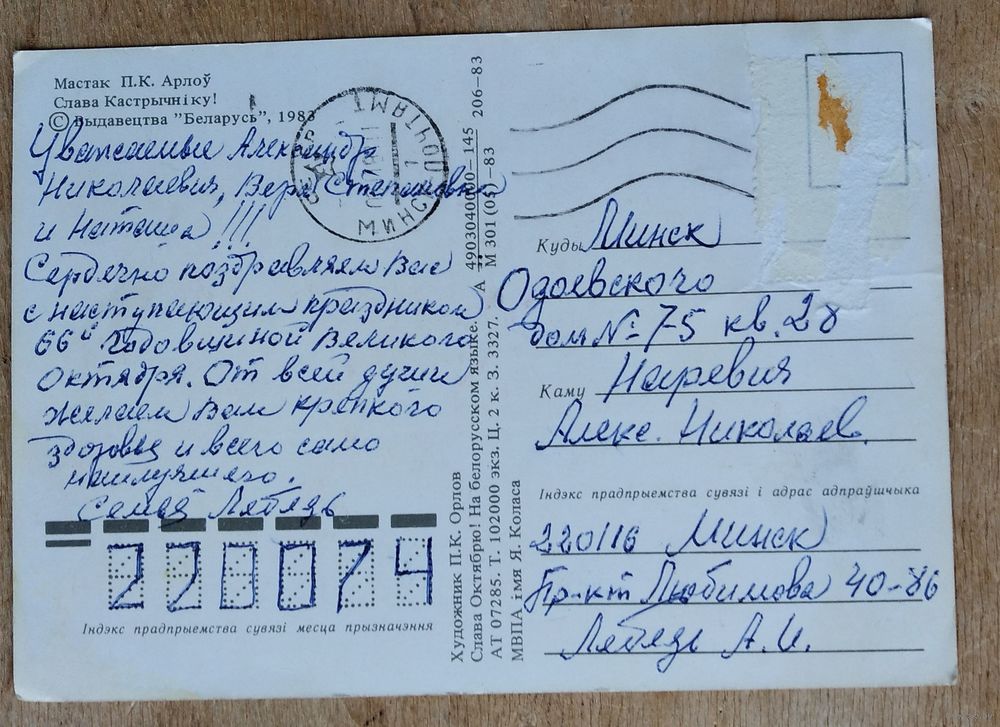 Мастак П.К. Арлоў
Слава Кастрычніку!
© Выдавецтва "Беларусь", 1983
Уважаемые Александр
Николаевич, Вера Степановна
и Наташа!!!
Сердечно поздравляем Вас
с наступающим праздником
66й Годовщиной Великого
Октября. От всей души
желаем Вам крепкого
здоровья и всего само
наилучшего.
Семья Лебедь
220074
Індэкс прадпрыемства сувязі месца прызначэння
Художник П.К. Орлов
Слава Октябрю! На белорусском языке. А 4903040000—145 206—83
М 301(05)—83
АТ 07285. Т. 102000 экз. Ц. 2 к. З. 3327.
МВПА імя Я. Коласа
МИНСК
ПОЧТАМТ
Куды Минск
Одоевского
дом № 75 кв. 28
Каму Наревич
Алекс. Николаев.
Індэкс прадпрыемства сувязі і адрас адпраўшчыка
220116 Минск
Пр-кт Любимова 40-86
Лебедь А.И.